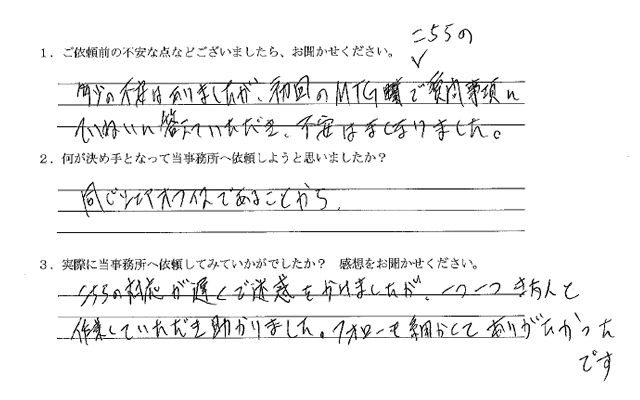 こちらの
1．ご依頼前の不安な点などございましたら、お聞かせください。
多少の不安はありましたが、初回のMTGで質問事項に
ていねいに答えていただき、不安はなくなりました。
2．何が決め手となって当事務所へ依頼しようと思いましたか？
同じシェアオフィスであることから。
3．実際に当事務所へ依頼してみていかがでしたか？ 感想をお聞かせください。
こちらの対応が遅くご迷惑をかけましたが、一つ一つきちんと
作業していただき助かりました。フォローも細かくてありがたかった
です